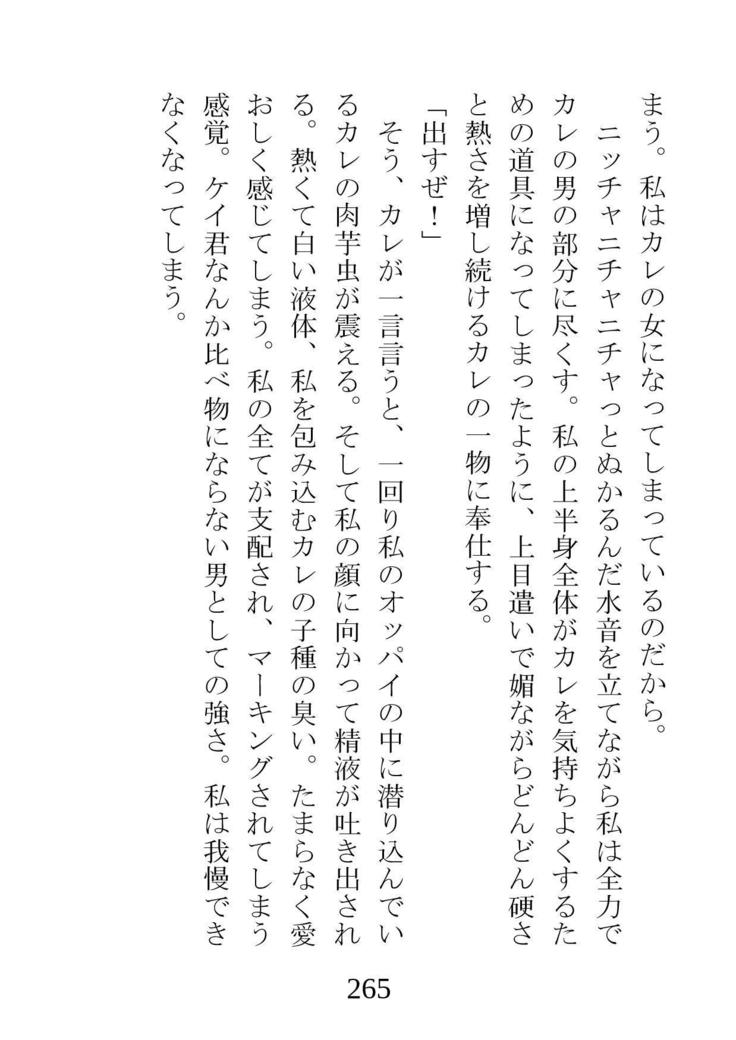 まう。私はカレの女になってしまっているのだから。
　ニッチャニチャニチャっとぬかるんだ水音を立てながら私は全力で
カレの男の部分に尽くす。私の上半身全体がカレを気持ちよくするた
めの道具になってしまったように、上目遣いで媚ながらどんどん硬さ
と熱さを増し続けるカレの一物に奉仕する。
「出すぜ！」
　そう、カレが一言言うと、一回り私のオッパイの中に潜り込んでい
るカレの肉芋虫が震える。そして私の顔に向かって精液が吐き出され
る。熱くて白い液体、私を包み込むカレの子種の臭い。たまらなく愛
おしく感じてしまう。私の全てが支配され、マーキングされてしまう
感覚。ケイ君なんか比べ物にならない男としての強さ。私は我慢でき
なくなってしまう。
265